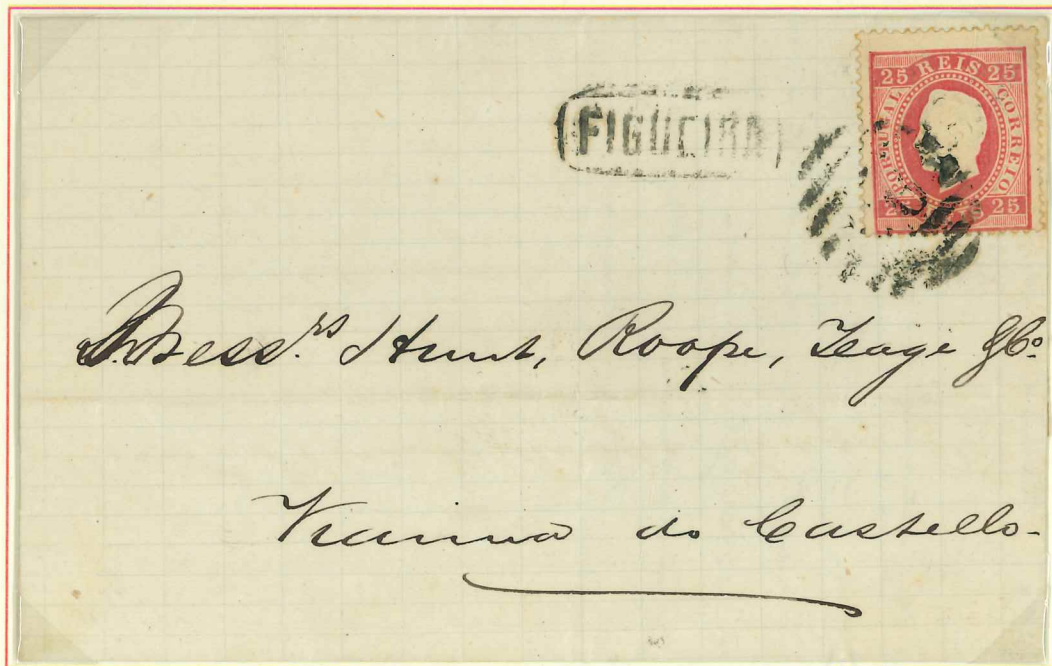 FIGUEIRA
25 REIS 25
PORTUGAL
CORREIO
25 25
Mess.rs Hunt, Roope, Teage & Co.
Vianna do Castello-